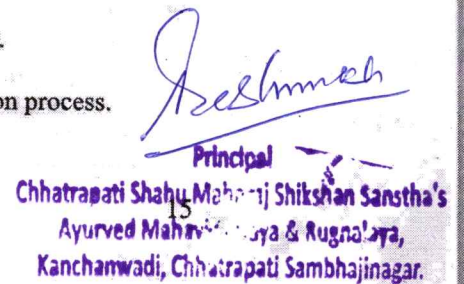 on process.
Principal
Chhatrapati Shahu Maharaj Shikshan Sanstha's
15
Ayurved Mahavidyalaya & Rugnalaya,
Kanchanwadi, Chhatrapati Sambhajinagar.